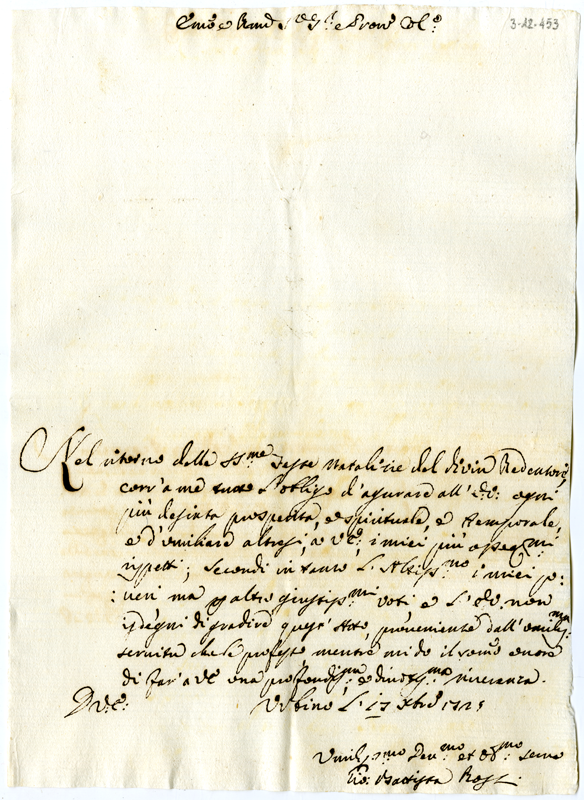 3-12-453
Emo e Rmo Sre Sre e Prone Colo
Nel ritorno delle SSme Feste Natalizie del Divin Redentore
corr'a me tutto l'obligo d'agurare all' E.V. ogni
più desiata prosperità, e spirituale, e temporale,
e d'umiliare altresi, a V.E. i miei più osseqmi
rispetti; Secondi in tanto l'Altissmo i miei po:
:veri ma p altro giustissmi voti e l'E.V. non
isdegni di gradire quest' Atto, proveniente dall' umilma
servitù che le professo mentre mi do il sommo onore
di far' a V.E. una profondissma, e divotissma riverenza.
D V.E. Urbino l. 17 Xbre 1725
Umilissmo Devmo et Obmo Servo
Gio: Battista Rossi